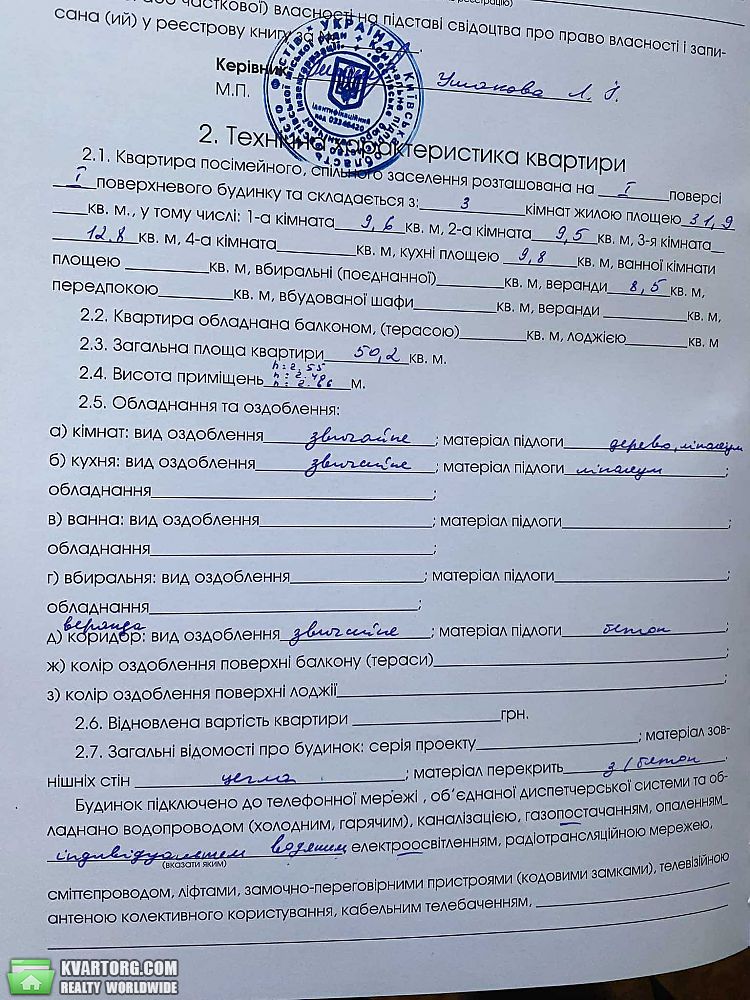 або часткової) власності на підставі свідоцтва про право власності і запи-
сана (ий) у реєстрову книгу за №
Керівник Ушакова Л. І.
М.П.
УКРАЇНА
ідентифікаційний
2. Технічна характеристика квартири
2.1. Квартира посімейного, спільного заселення розташована на I поверсі
I поверхневого будинку та складається з: 3 кімнат жилою площею 31,9
кв. м., у тому числі: 1-а кімната 9,6 кв. м, 2-а кімната 9,5 кв. м, 3-я кімната
12,8 кв. м, 4-а кімната кв. м, кухні площею 9,8 кв. м, ванної кімнати
площею кв. м, вбиральні (поєднанної) кв. м, веранди 8,5 кв. м,
передпокою кв. м, вбудованої шафи кв. м, веранди кв. м,
2.2. Квартира обладнана балконом, (терасою) кв. м, лоджією кв. м
2.3. Загальна площа квартири 50,2 кв. м.
h: 2.55
2.4. Висота приміщень h: 2.49 м.
h: 2.66
2.5. Обладнання та оздоблення:
а) кімнат: вид оздоблення звичайне ; матеріал підлоги дерево, лінолеум
б) кухня: вид оздоблення звичайне ; матеріал підлоги лінолеум ;
обладнання ;
в) ванна: вид оздоблення ; матеріал підлоги ;
обладнання ;
г) вбиральня: вид оздоблення ; матеріал підлоги ;
обладнання ;
веранда
д) коридор: вид оздоблення звичайне ; матеріал підлоги бетон ;
ж) колір оздоблення поверхні балкону (тераси) ;
з) колір оздоблення поверхні лоджії ;
2.6. Відновлена вартість квартири грн.
2.7. Загальні відомості про будинок: серія проекту ; матеріал зов-
нішніх стін цегла ; матеріал перекрить з/бетон .
Будинок підключено до телефонної мережі , об'єднаної диспетчерської системи та об-
ладнано водопроводом (холодним, гарячим), каналізацією, газопостачанням, опаленням
індивідуальним водяним електроосвітленням, радіотрансляційною мережею,
(вказати яким)
сміттєпроводом, ліфтами, замочно-переговірними пристроями (кодовими замками), телевізійною
антеною колективного користування, кабельним телебаченням,
KVARTORG.COM
REALTY WORLDWIDE